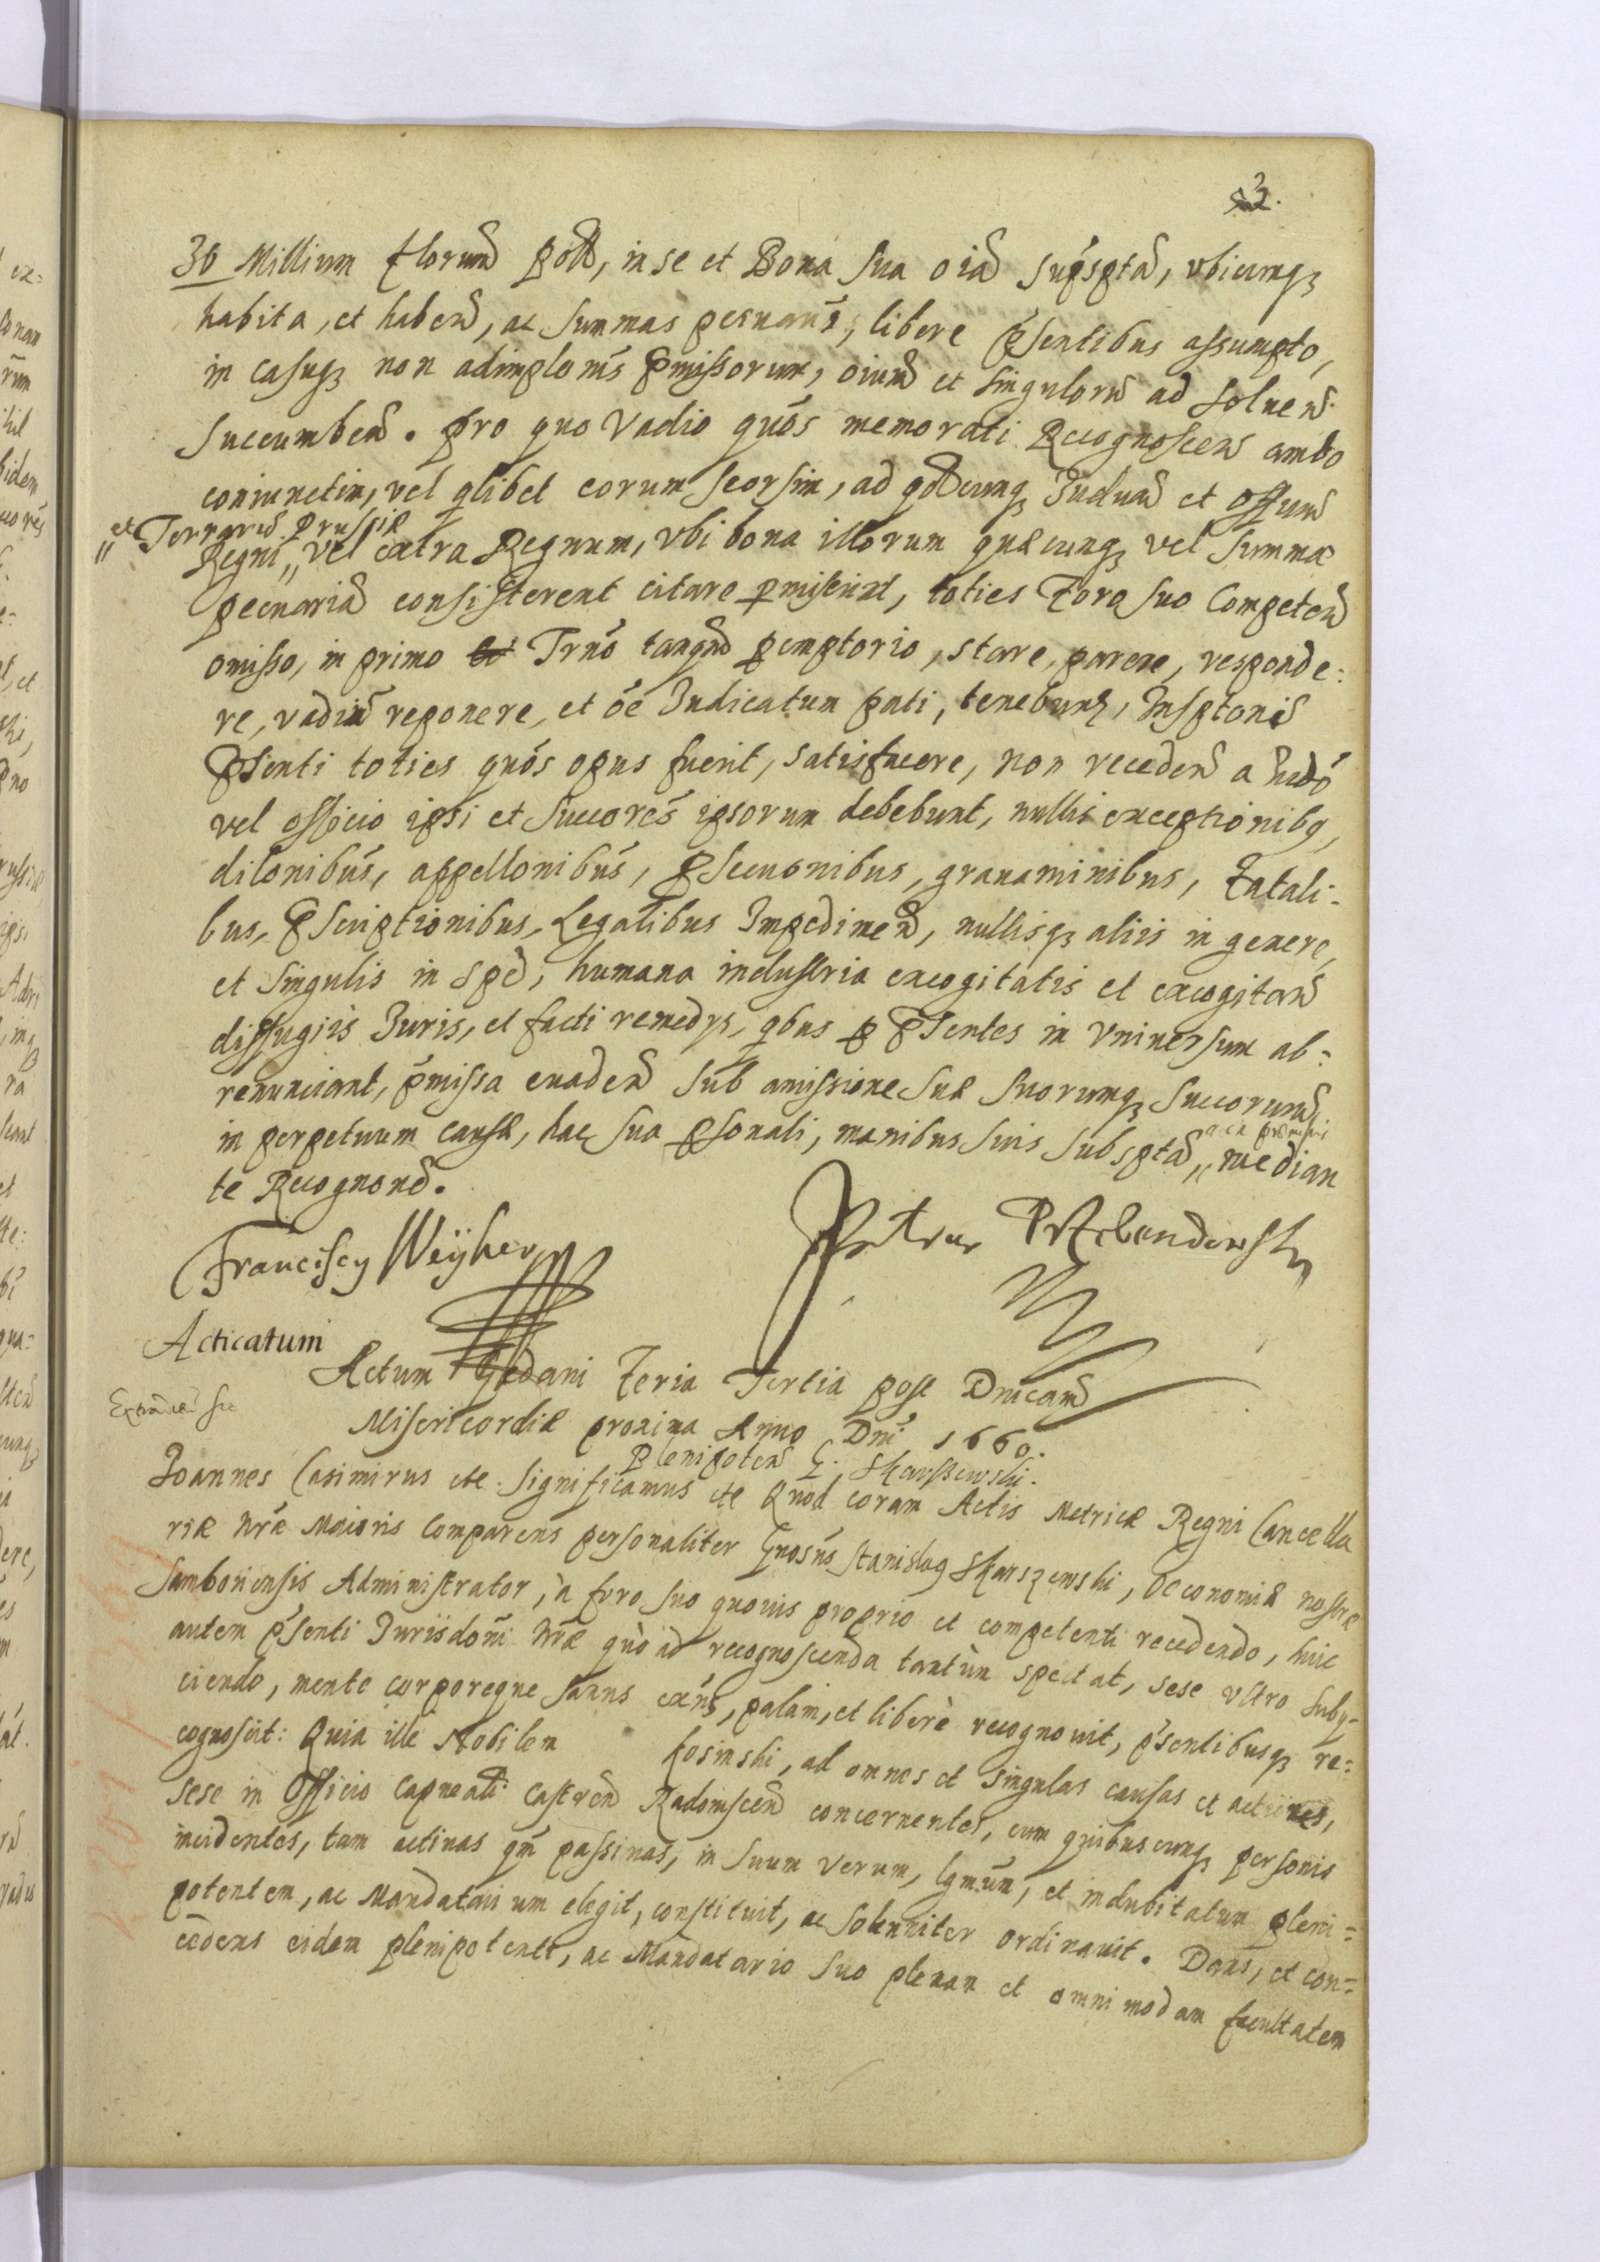 3.
30 Millium florum poll, in se et Bona sua oia supsptа, vbicumq3
habita, et haben, ac summas pecuarias, libere psentibus assumpto,
in casuq3 non adimplonis pmissorum, oium et singulorum ad soluen
succumben. Pro quo Vadio quos memorati Recognoscen ambo
coniunctim, vel qlibet eorum seorsim, ad qodcumq3 Iudium et offium
Regni, "et Terrarum Prussiæ" vel extra Regnum, vbi bona illorum quæcunq3 vel summæ
pecuariæ consisterent citare pmiserint, toties foro suo Competen
omisso, in primo Trno tanqm pemptorio, stare, parere, responde:
re, vadium reponere, et oe Iudicatum pati, tenebunt, Insptonis
psenti toties quos opus fuerit, satisfacere, non receden a Iudo
vel officio ipsi et succores ipsorum debebunt, nullis exceptionibq,
dilonibus, appellonibus, psecuonibus, grauaminibus, fatali:
bus, pscriptionibus, Legalibus Impedimen, nullisq3 aliis in genere,
et singulis in spe, humana industria excogitatis et excogitan
diffugiis Iuris, et facti remedys, qbus p psentes in vniuersum ab:
renunciant, pmissa euaden sub amissione suæ suorumq3 succorum
in perpetuum causæ, hac sua psonali, manibus suis subsptа, median
te Recognone.
Franciscq Weÿher
Petrus Przebendowsky
Acticatum
Actum Gedani feria Tertia post Dnicam
Misericordiæ proxima Anno Dni 1660.
Plenipoten G. Skarszewski.
Joannes Casimirus etc. significamus etc Quod coram Actis Metricæ Regni Cancella
riæ nræ Maioris Comparens personaliter Gnosus Stanislaq Skarszewski, Oeconomiæ nostræ
Samboriensis Administrator, à foro suo quouis proprio et competenti recedendo, huic
autem psenti Jurisdoni nræ quò ad recognoscenda tantùm spectat, sese vltro suby-
ciendo, mente corporeque sanus exns, palam, et liberè recognouit, psentibusq3 re=
cognoscit: Quia ille Nobilem Kosinski, ad omnes et singulas causas et actiones,
sese in Officio Capneali Castren Radomscen concernentes, cum quibuscunq3 personis
incidentes, tam actiuas qm passiuas, in suum verum, lgmum, et indubitatum pleni=
potentem, ac Mandatarium elegit, constituit, ac solenniter ordinauit. Dans, et con=
cedens eidem plenipotenti, ac Mandatario suo plenam et omnimodam facultatem